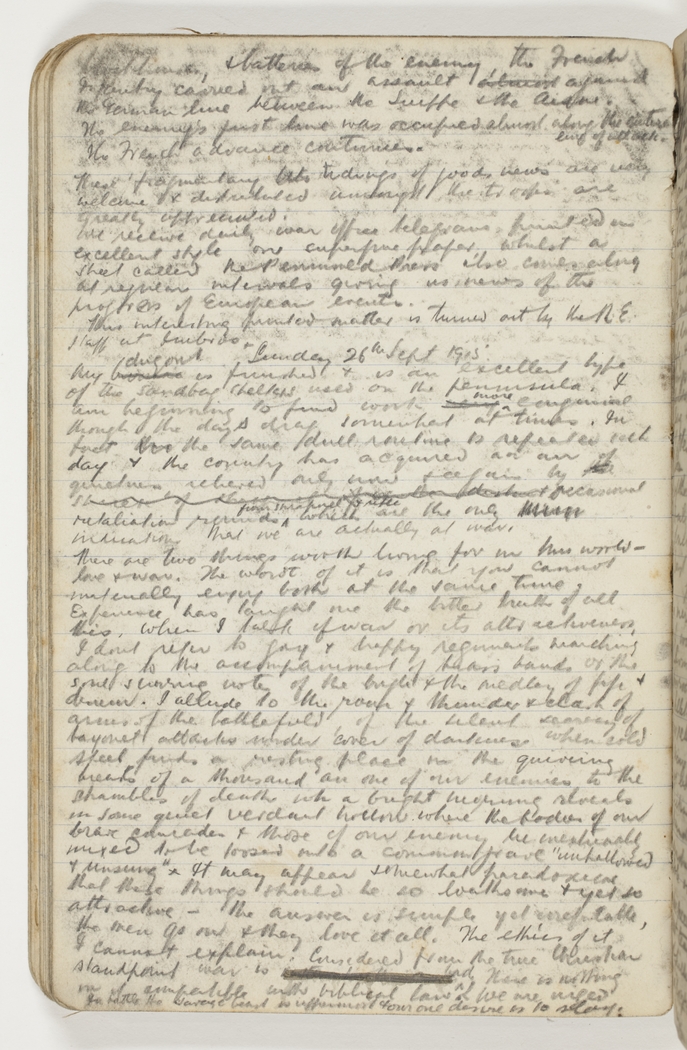 & batteries of the enemy the French
Infantry carried out an assault against
the German line between the Suippe & the Aisne.
The enemy's first line was occupied almost along the entire
line of attack.
The French advance continues.
These fragmentary tidings of good news are very
welcome & distributed amongst the troops are
greatly appreciated.
We receive daily war office telegrams printed in
excellent style on superfine paper, whilst a
sheet called the Peninsula Press also comes along
at regular intervals giving us news of the
progress of European events.
This interesting printed matter is turned out by the R.E.
staff at Imbros.
Sunday 26th Sept 1915
dugout
My is finished & is an excellent type
of the sandbag shelters used on the peninsula. I
am beginning to find work more congenial
though the days drag somewhat at times. In
fact the same dull routine is repeated each
day & the country has acquired an air of
quietness relieved only now & again by
occasional
from shrapnel
retaliation which are the only
indications that we are actually at war.
There are two things worth living for in this world –
love & war. The worst of it is that you cannot
enjoy both at the same time.
Experience has taught me the bitter truth of all
this. When I talk of war or its attractiveness,
I don't refer to gay & happy regiments marching
along to the accompaniment of brass bands or the
soul stirring notes of the bugle & the medley of fife &
drum. I allude to the roar & thunder & clash of
arms of the battlefield, of the silent
bayonet attacks under cover of darkness when cold
steel finds a resting place in the quivering
breasts of a thousand an one of our enemies to the
shambles of death when a bright morning reveals
in some quiet verdant hollow where the bodies of our
brave comrades & those of our enemy lie inextricably
mixed to be tossed into a common grave "unhallowed
& unsung" & It may appear somewhat paradoxical
that these things should be so loathsome & yet so
attractive – the answer is simple yet irrefutable,
the men go on & they love it all. The ethics of it
I cannot explain. Considered from the true Christian
standpoint war is and there is nothing
in it compatible with biblical law. We are
In battle the savage beast is uppermost & our one desire is to slay.